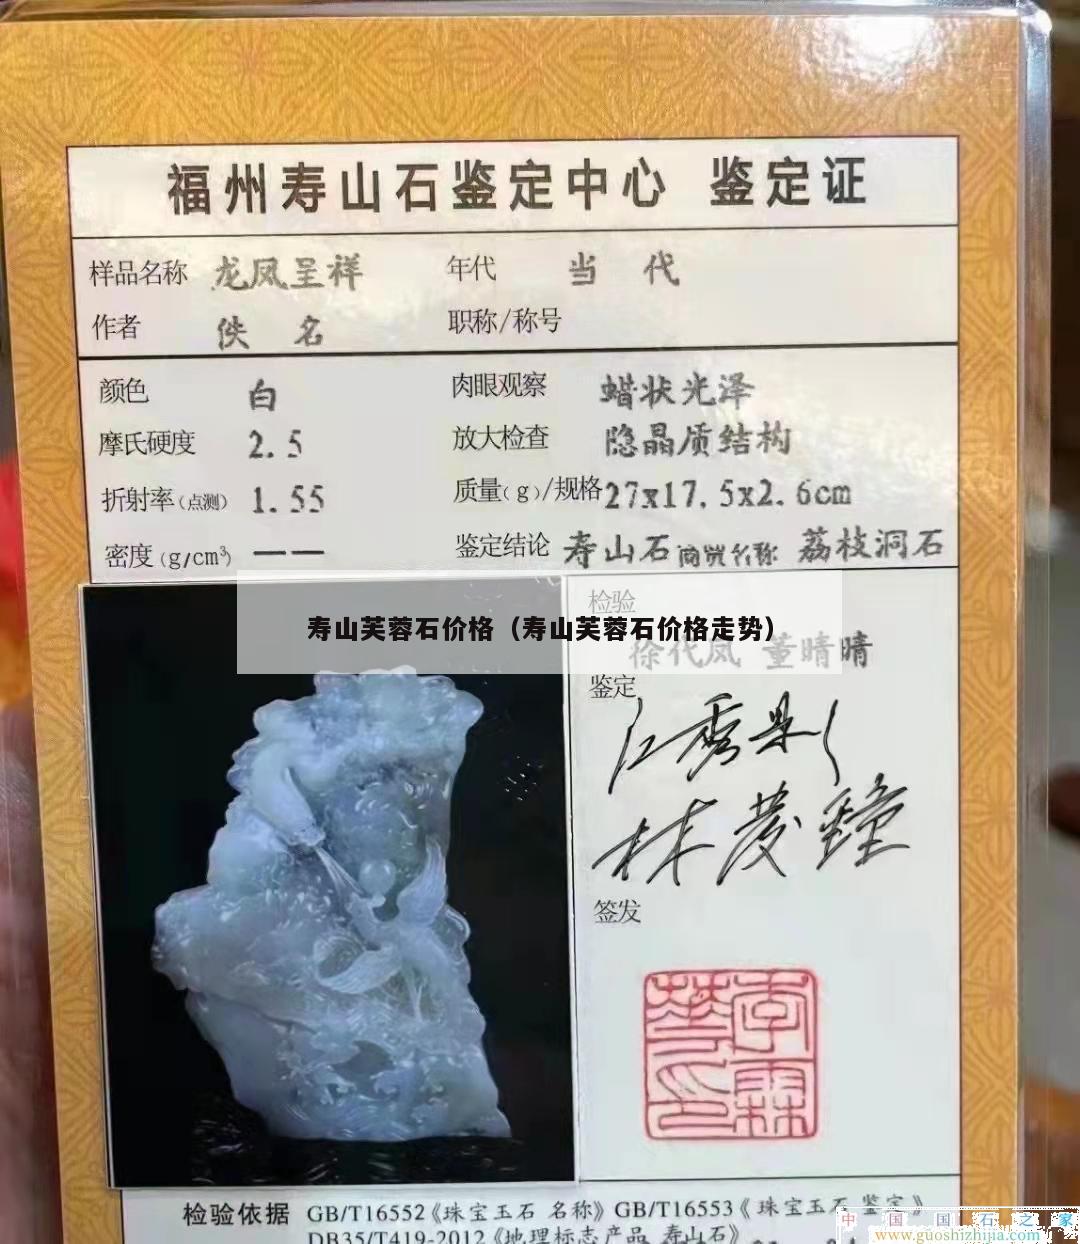 福州寿山石鉴定中心 鉴定证
样品名称 龙凤呈祥 年代 当 代
作者 佚 名 职称/称号
颜色 白 肉眼观察 蜡状光泽
摩氏硬度 2.5 放大检查 隐晶质结构
折射率(点测) 1.55 质量(g)/规格 27x17.5x2.6cm
密度(g/cm³) —— 鉴定结论 寿山石 商贸名称 荔枝洞石
检验
寿山芙蓉石价格（寿山芙蓉石价格走势）
徐代凤 董晴晴
鉴定
江秀影
林茂鐘
签发
李霖
华印
检验依据 GB/T16552《珠宝玉石 名称》GB/T16553《珠宝玉石 鉴定》
DB35/T419-2012《地理标志产品 寿山石》
中国国石之家
www.guoshizhijia.com